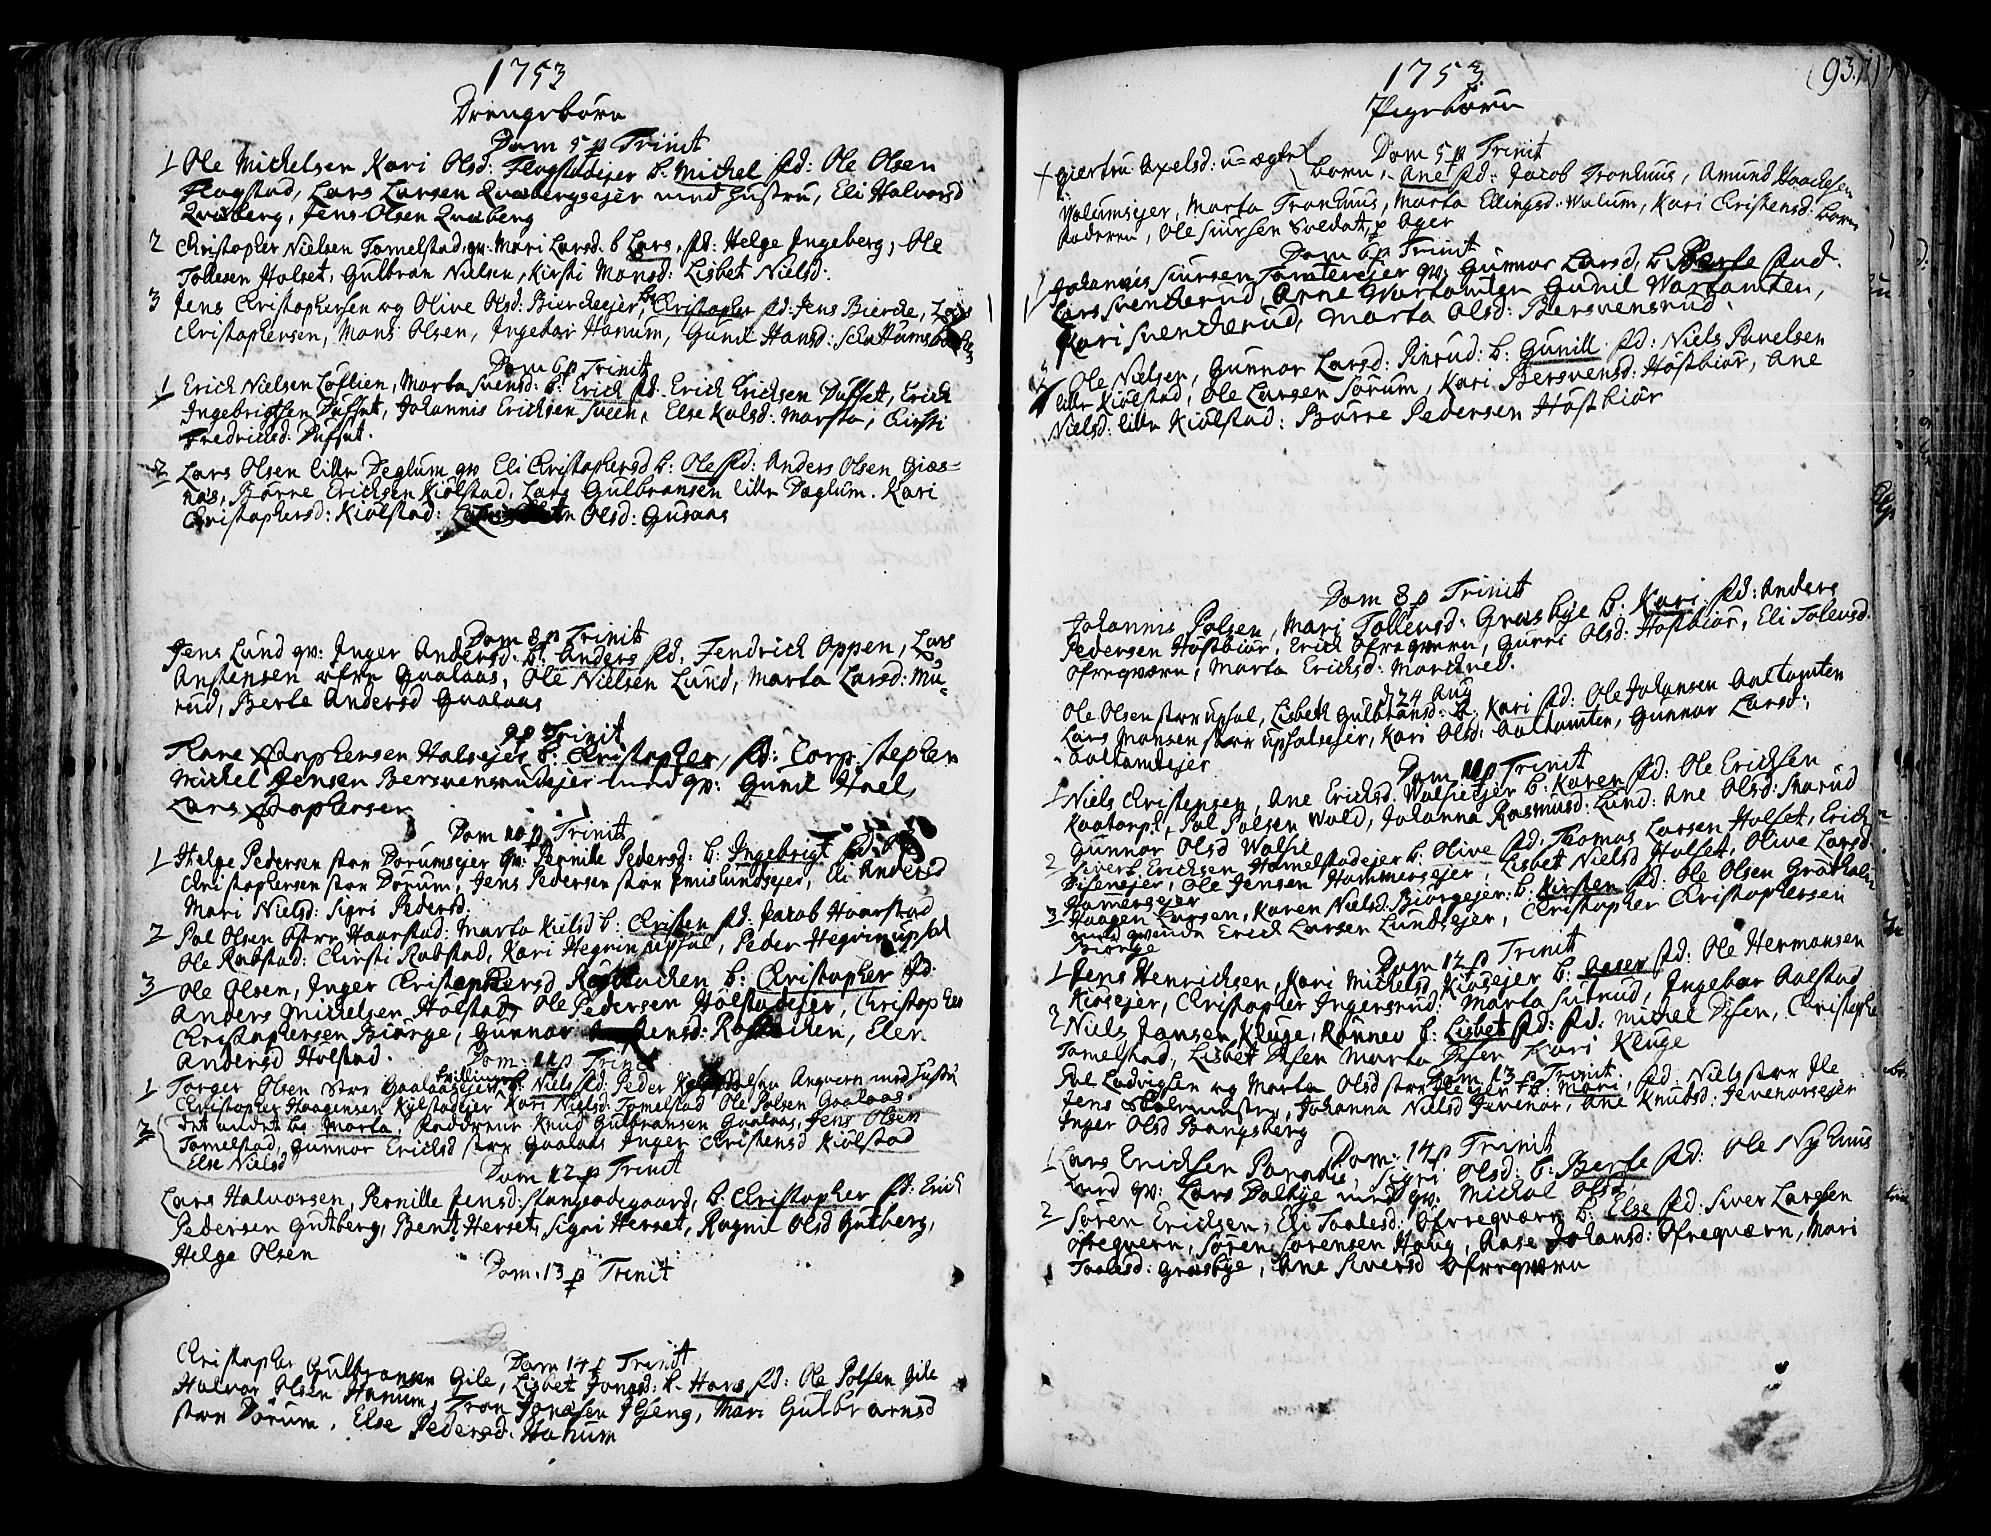 1753
Drengebørn
Dom 5 p Trinit
1 Ole Michelsen Kari Olsd: Flagstadejer b. Michel fd: Ole Olsen
Flagstad, Lars Larsen Qvabergsejer med Hustru, Eli Halvorsd
Qvaberg, Jens Olsen Qvaberg
2 Christopher Nielsen Tomelstad, qv: Mari Larsd. b Lars, fd: Helge Ingeberg, Ole
Tollesen Holset, Gulbran Nielsen, Kirsti Monsd: Lisbet Nielsd:
3 Jens Christophersen og Olive Olsd: Bierckeejer, b: Christopher fd: Jens Bierche, Lars
Christophersen, Mons Olsen, Ingebor Honum, Gunil Hansd:
Dom 6 p Trinit
1 Erich Nielsen Løslien, Marta Svensd: b: Erich fd. Erich Erichsen Duffset, Erich
Ingebrigtsen Duffset, Johannis Erichsen Sveen, Else Kolsd: Marsta, Cirsti
Fredrichsd: Duffset.
2 Lars Olsen lille Deglum qv Eli Christophersd b: Ole fd: Anders Olsen Gios=
nas, Børre Erichsen Kiølstad, Lars Gulbransen lille Dæglum. Kari
Christophersd: Kiølstad: Olsd: Gusaas
Dom 8 p Trinit
Jens Lund qv: Inger Andersd: b: Anders fd: Fendrich Oppen, Lars
Anstensen øfre Gaalaas, Ole Nielsen Lund, Marta Larsd: Mu=
rud, Berte Andersd Gaalaas
9 p Trinit
Thore Stephensen Halsejer b: Christopher, fd: Corp. Stephen
Michel Jensen Bersvensrudejer med qv: Gunil Hoel,
Lars Stephensen
Dom 10 p Trinit
1 Helge Pedersen stor Dørumsejer qv: Pernille Pedersd: b: Ingebrigt fd:
Christophersen stor Dørum, Jens Pedersen stor Emislundsejer, Eli Andersd
Mari Nielsd: Sigri Pedersd.
2 Pol Olsen østre Haarstad: Marta Kielsd b: Christen fd: Jacob Haarstad
Ole Rabstad: Christi Rabstad, Kari Hegrin upsal, Peder Hegrin upsal
3 Ole Olsen, Inger Christophersd b: Christopher fd:
Anders Michelsen Holstad, Ole Pedersen Holstadejer, Christopher
Christophersen Biørge, Gunnor Eler.
Andersd Holstad.
Dom. 11 p Trinit
1 Torger Olsen stor Gaalaasejer tvillinger b: Niels fd: Peder Angvern med Hustru
Christopher Haagensen Kylstadejer Kari Nielsd: Tomelstad Ole Polsen Gaalaas.
2 Det andet b: Marta, Fadderne Knud Gulbransen Gaalaas, Jens Olsen
Tomelstad, Gunnor Erichsd stor Gaalaas Inger Christensd Kiølstad
Else Nielsd
Dom 12 p Trinit
Lars Halvorsen, Pernille Jensd: Stangeødegaard, b: Christopher fd: Erich
Pedersen Gutberg, Bent Herset, Sigri Herset, Ragnil Olsd Gutberg,
Helge Olsen
Dom. 13 p Trinit
Dom 14 p Trinit
Christopher Gulbransen Gile, Lisbet Jonsd: b. Hans fd: Ole Polsen Gile
Halvor Olsen Honum, Tron Jonesen Hieng, Mari Gulbransd
stor Dørum, Else Pedersd. Honum
1753.
Pigebørn
(93.)
Dom 5 p Trinit
Giertru Axelsd: u=ægte børn, Ane fd: Jacob Tronhuus, Amund Haachesen
Valumsejer, Marta Tronhuus, Marta Ellingsd: Valum, Kari Christensd: barne
faderen, Ole Siursen Soldat, p Ager
Dom 6 p Trinit
1 Johannis Siursen Tomterejer qv: Gunnor Larsd, b Berte fad.
Lars Svencherud, Anne Wartomten Gunil Wartomten,
Kari Svencherud, Marta Olsd: Bersvensrud.
2 Ole Nielsen, Gunnor Larsd: Finrud: b: Gunill. fd: Niels Pavelsen
lille Kiølstad, Ole Larsen Sørum, Kari Bersvensd: Høstbiør, Ane
Nielsd: lille Kiølstad: Børre Pedersen Høstbiør
Dom 8 p Trinit
Johannis Polsen, Mari Tollensd: Græsbye b: Kari fd: Anders
Pedersen Høstbiør, Erich Øfreqværn, Gurri Olsd: Høstbiør, Eli Tolensd.
Øfreqværn, Marta Erichsd: Marchved.
d 24 Aug
Ole Olsen stor upsal, Lisbeth Gulbransd: b: Kari fd: Ole Johansen Aaltomten
Lars Monsen stor upsalsejer, Kari Olsd: Aaltomten, Gunnor Larsd:
Aaltomtejer
Dom 10 p Trinit
1 Niels Christensen, Ane Erichsd: Walsieejer b: Karen fd: Ole Erichsen
Kaatorp, Pol Polsen Wold, Johanna Rasmusd: Lund: Ane Olsd: Skarud
Gunnor Olsd Walsie
2 Sivert Erichsen Hamelstadejer b: Olive fd: Thomas Larsen Holset, Erich
Disenejer, Ole Jensen Hommersejer, Lisbet Nielsd Holset, Olive Larsd
Hamersejer
3 Haagen Larsen, Karen Nielsd: Biørgejer: b: Kirsten fd: Ole Olsen Grøtholm
med qvinde Erich Larsen Lundsejer, Christopher Christophersen
Biørge
Dom 12 p Trinit
1 Jens Henrichsen, Kari Michelsd Kiosejer b: Aasen fd: Ole Hermansen
Kiosejer, Christopher Ingersrud: Marta Sutrud, Ingebor Aalstad
2 Niels Jansen Kluge, Rønnev b: Lisbet fd: fd: Michel Disen, Christopher
Tomelstad, Lisbet Disen Marta Disen Kari Kluge
Dom 13 p Trinit.
Pol Ludvigsen og Marta Olsd stor b: Mari, fd: Niels stor Ile
Jens Skolemester, Johanna Nielsd Jevenor, Ane Knudsd: Jevenorsejer
Inger Olsd Bangsberg
Dom: 14 p Trinit
1 Lars Erichsen Paradis, Sigri Olsd: b: Berte fd: Ole Nyhuus
med qv: Lars Dalbye med qv: Michel Olsd
2 Søren Erichsen, Eli Taalesd: Øfreqværn b: Else fd: Siver Larsen
Øfreqværn, Søren Sørensen Haug, Aase Johansd: Øfreqværn, Mari
Taalesd: Græsbye, Ane Siversd Øfreqværn